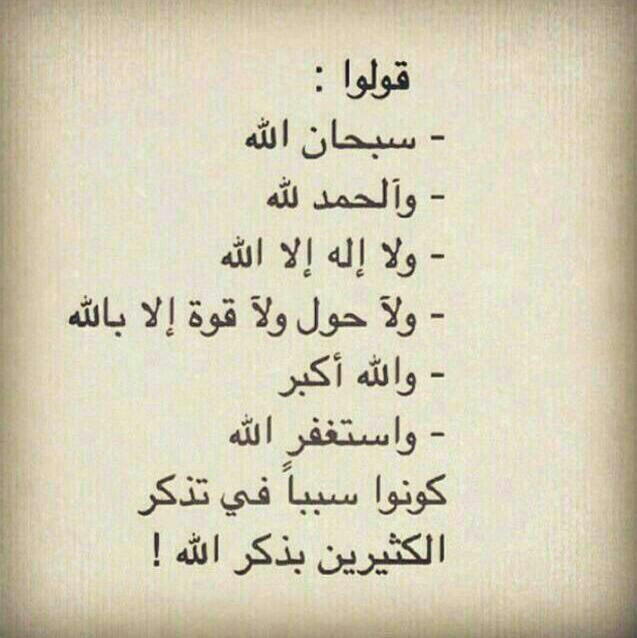 قولوا :
- سبحان الله
- وآلحمد لله
- ولا إله إلا الله
- ولآ حول ولآ قوة إلا بالله
- والله أكبر
- واستغفر الله
كونوا سبباً في تذكر
الكثيرين بذكر الله !